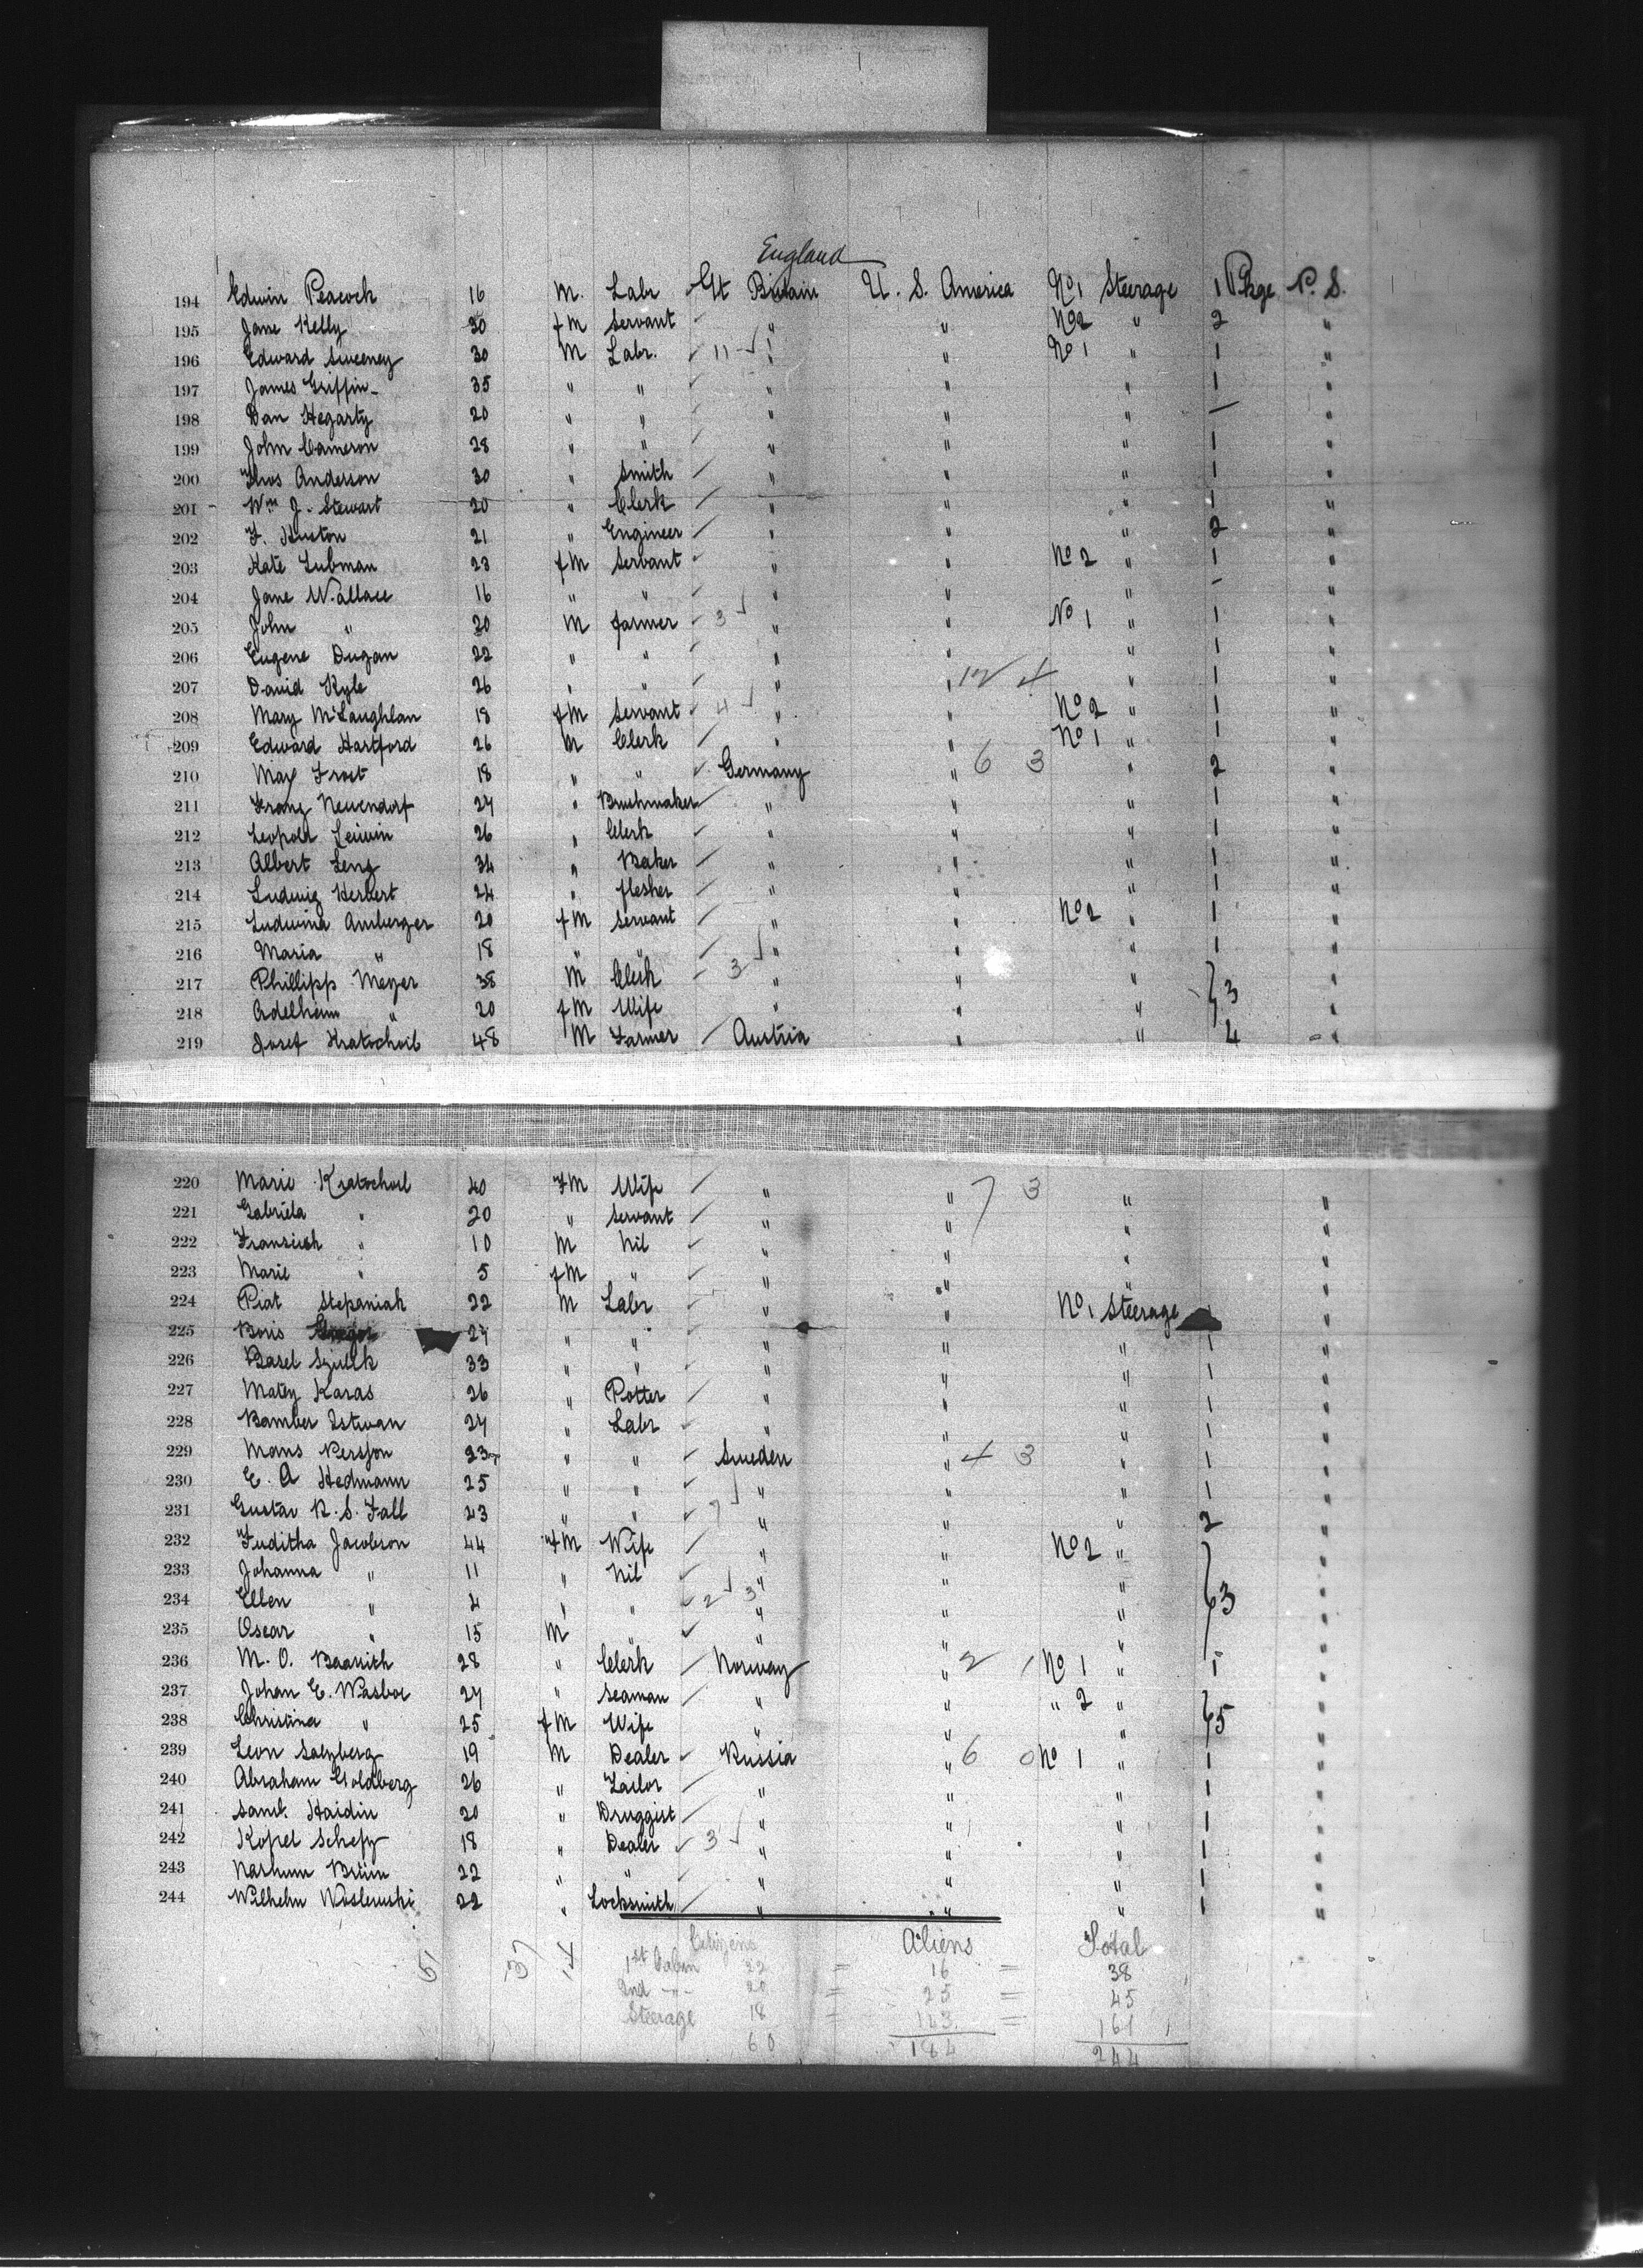 England
194 Edwin Peacock 16 M. Labr Gt Britain U. S. America No 1 Steerage 1 Pkge P. S.
195 Jane Kelly 30 fM Servant " " No 2 " 2 "
196 Edward Sweeney 30 M Labr. 11 " " No 1 " 1 "
197 James Griffin 35 " " " " " 1 "
198 Dan Hegarty 20 " " " " " — "
199 John Cameron 28 " " " " " 1 "
200 Thos Anderson 30 " Smith " " " 1 "
201 Wm J. Stewart 20 " Clerk " " " 1 "
202 F. Huston 21 " Engineer " " " 2 "
203 Kate Lubman 23 fM Servant " " No 2 " 1 "
204 Jane Wallace 16 " " " " " - "
205 John " 20 M farmer 3 " " No 1 " 1 "
206 Eugene Dugan 22 " " " " " 1 "
207 David Kyle 26 " " " " 12 4 " 1 "
208 Mary McLaughlan 18 fM Servant 4 " " No 2 " 1 "
209 Edward Hartford 26 M Clerk " " No 1 " 1 "
210 Max Frost 18 " " Germany " 6 3 " 2 "
211 Franz Neuendorf 24 " Brushmaker " " " 1 "
212 Leopold 26 " Clerk " " " 1 "
213 Albert Leng 34 " Baker " " " 1 "
214 Ludwig Herbert 24 " flesher " " " 1 "
215 Ludwina Amberger 20 fM Servant " " No 2 " 1 "
216 Maria " 18 " " " " " 1 "
217 Phillipp Meyer 38 M Clerk 3 " " " 3 "
218 Adelheim " 20 fM Wife " " " "
219 Josef Kratochvil 48 M Farmer Austria " " 4 "
220 Marie Kratochvil 40 FM Wife " " 7 3 " "
221 Gabriela " 20 " Servant " " " "
222 " 10 M Nil " " " "
223 Marie " 5 fM " " " " "
224 Piat Stepaniak 22 M Labr " " No 1 Steerage 1 "
225 Boris 24 " " " " " 1 "
226 Basel 33 " " " " " 1 "
227 Matey Karas 26 " Potter " " " 1 "
228 Bamber Istwan 24 " Labr " " " 1 "
229 Mans Persson 23 " " Sweden " 4 3 " 1 "
230 E. A Hedmann 25 " " " " " 1 "
231 Gustav R. S. Fall 23 " " 7 " " " 2 "
232 Juditha Jacobson 44 FM Wife " " No 2 " "
233 Johanna " 11 " Nil " " " "
234 Ellen " 4 " " 2 3 " " " 3 "
235 Oscar " 15 M " " " " "
236 M. O. Baarith 28 " Clerk Norway " 2 1 No 1 " 1 "
237 Johan E. Wasboe 24 " Seaman " " " 2 " "
238 Christina " 25 fM Wife " " " 5 "
239 Leon Salzberg 19 M Dealer Russia " 6 0 No 1 " 1 "
240 Abraham Goldberg 26 " Tailor " " " 1 "
241 Saml. Haidin 20 " Druggist " " " 1 "
242 Kopel Schefy 18 " Dealer 3 " " " 1 "
243 Nashum Brüin 22 " " " " " 1 "
244 Wilhelm 22 " Locksmith " " " 1 "
Citizens Aliens Total
1st Cabin 22 = 16 = 38
2nd -"- 20 = 25 = 45
Steerage 18 = 143 = 161
60 184 244
5 37 4